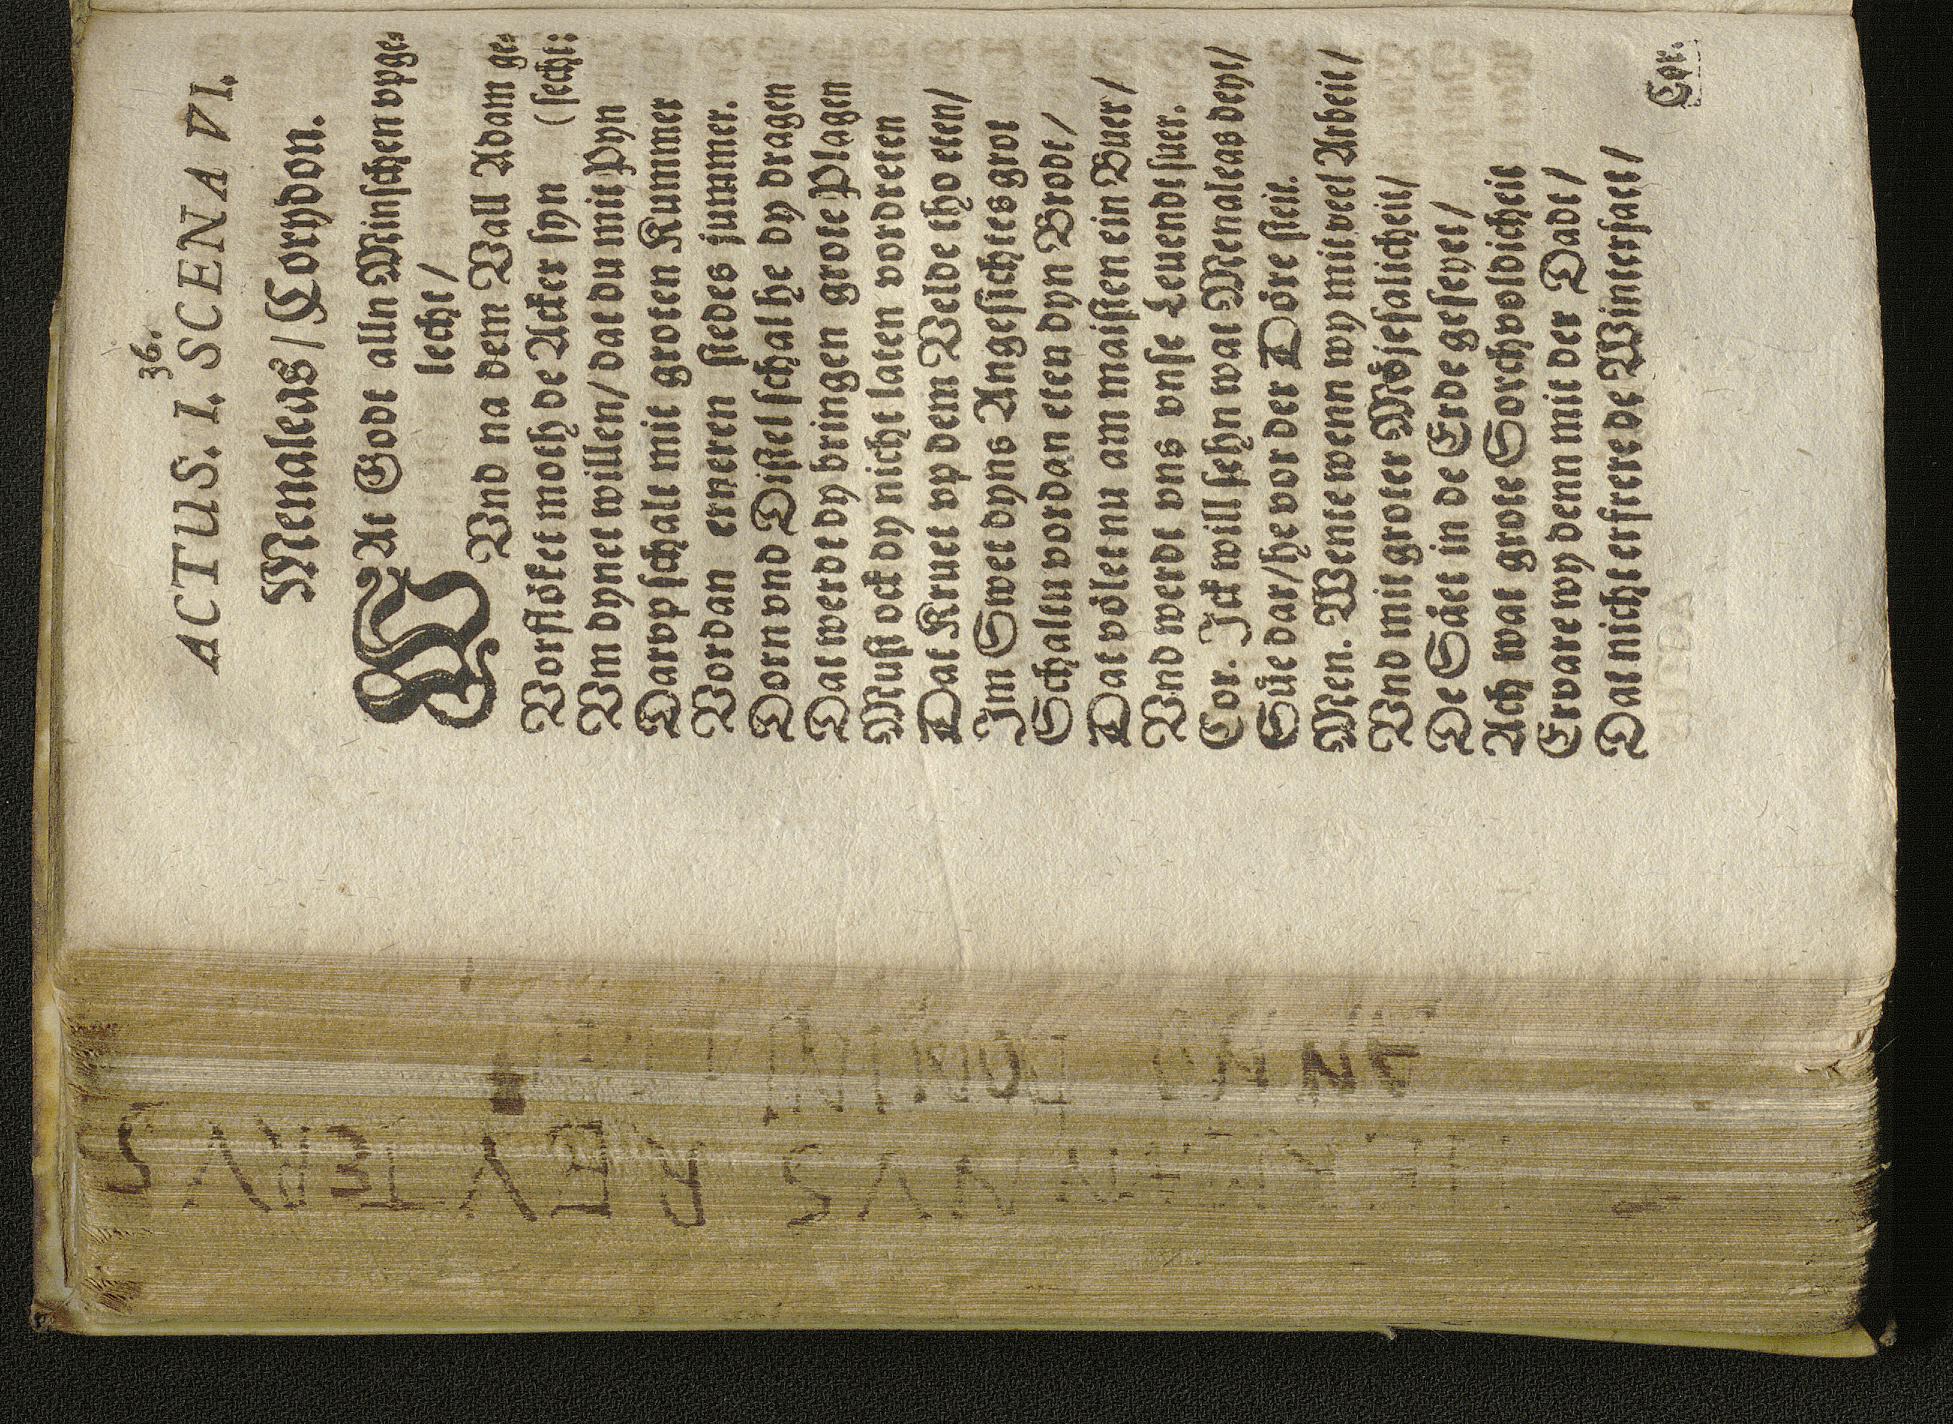 36.
ACTUS. I. SCENA VI.
Menaleas / Corydon.
WAt Godt alln Minschen vpge-
lecht /
Vnd na dem Vall Adam ge-
(secht:
Vorflöket moth de Acker syn
Vm dynet willen / dat du mit Pyn
Darvp schalt mit groten Kummer
Vordan erneren stedes jummer.
Dorn vnd Distel schal he dy dragen
Dat werdt dy bringen grote Plagen
Must ock dy nicht laten vordreten
Dat Kruet vp dem Velde tho eten /
Jm Swet dyns Angesichtes grot
Schaltu vordan eten dyn Brodt /
Dat völet nu am maisten ein Buer /
Vnd werdt vns vnse Leuendt suer.
Cor. Jck will sehn wat Menaleas deyt /
Süe dar / he vor der Döre steit.
Men. Wente wenn wy mit veel Arbeit /
Vnd mit groter Möjesalicheit /
De Säet in de Erde geseyet /
Ach wat grote Sorchvoldicheit
Ervare wy denn mit der Dadt /
Dat nicht erfrere de Wintersaet /
Cor.
ANNO DOMINI
HERMANNVS REVTERVS